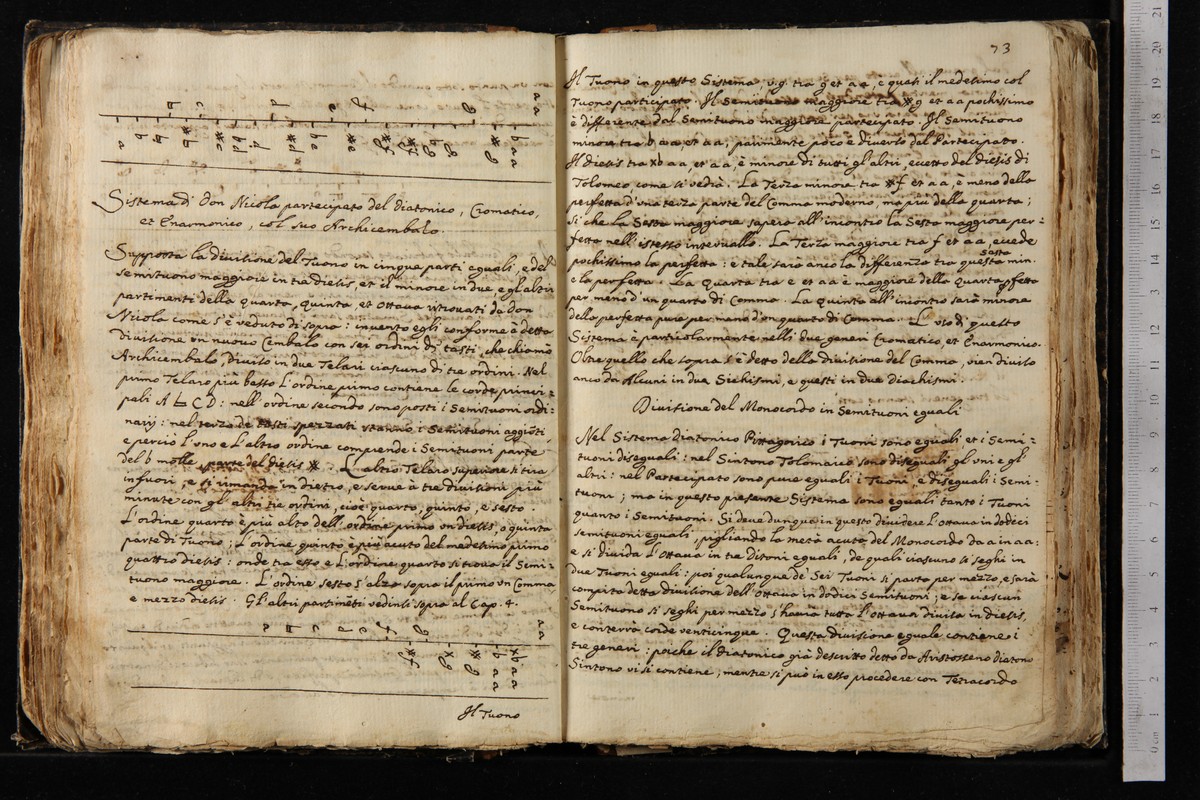 Sistema di don Nicola partecipato del diatonico, Cromatico,
et Enarmonico, col suo Archicembalo.
Supposta la divisione del Tuono in cinque parti eguali, e del
semituono maggiore in tre diesis, et il minore in due e gl'altri
partimenti della quarta, quinta, et ottava ritrovati da don
Nicola come s'è veduto di sopra: inventò egli conforme à detta
divisione un nuovo Cembalo con sei ordini di tasti, che chiamò
Archicembalo, diviso in due Telari ciascuno di tre ordini. Nel
primo Telaro più basso l'ordine primo contiene le corde princi=
pali A ♮ C D: nell'ordine secondo sono posti i Semituoni ordi=
narij: nel terzo de tasti spezzati stanno i Semituoni aggiõti,
e perciò l'uno e l'altro ordine comprende i Semituoni parte
del b molle, parte del diesis ※. L'altro Telaro superiore si tira
infuori, e si rimanda in dietro, e serve à tre divisioni più
minute con gl'altri tre ordini, cioè quarto, quinto, e sesto.
L'ordine quarto è più alto dell'ordine primo un diesis, o quinta
parte di Tuono; L'ordine quinto è più acuto del medesimo primo
quattro diesis: onde tra esso e l'ordine quarto si trova il Semi=
tuono maggiore. L'ordine sesto s'alza sopra il primo un Comma,
e mezzo diesis. Gl'altri partimẽti vedinsi sopra al Cap. 4.
Il Tuono
73
Il Tuono in questo Sistema v.g. tra g et aa è quasi il medesimo col
Tuono participato. Il Semituono maggiore tra ※g et aa pochissimo
è differente dal Semituono maggiore partecipato. Il Semituono
minore tra b aa, et aa, parimente poco è diverso dal Partecipato.
Il diesis tra xb aa, et aa, è minore di tutti gl'altri, eccetto del diesis di
Tolomeo, come si vedrà. La Terza minore tra ※f et aa, è meno della
perfetta d'una terza parte del Comma moderno, ma più della quarta;
si che la Sesta maggiore supera all'incontro la Sesta maggiore per=
fetta nell'istesso intervallo. La Terza maggiore tra f et aa, eccede
pochissimo la perfetta: e tale sarà anco la differenza tra questa sesta min.
e la perfetta. La Quarta tra e et aa è maggiore della Quarta pfetta
per meno d'un quarto di Comma. La quinta all'incontro sarà minore
della perfetta pure per meno d'un quarto di Comma. L'uso di questo
Sistema è particolarmente nelli due generi Cromatico, et Enarmonico.
Oltre quello che sopra s'è detto della divisione del Comma, vien diviso
anco da Alcuni in due Sichismi, e questi in due diachismi.
Divisione del Monocordo in Semituoni eguali
Nel Sistema diatonico Pittagorico i Tuoni sono eguali et i Semi=
tuoni diseguali: nel Sintono Tolomaico sono diseguali gl'uni e gl'
altri: nel Partecipato sono pure eguali i Tuoni, e diseguali i Semi=
tuoni; ma in questo presente Sistema sono eguali tanto i Tuoni
quanto i Semituoni. Si deve dunque in questo dividere l'ottava in dodici
semituoni eguali, pigliando la metà acuta del Monocordo da a in aa:
e si divida l'Ottava in tre ditoni eguali, de quali ciascuno si seghi in
due Tuoni eguali: poi qualunque de' Sei Tuoni si parta per mezzo, e sarà
compita detta divisione dell'Ottava in dodici Semituoni; e se ciascun
Semituono si seghi per mezzo s'havrà tutta l'ottava divisa in diesis,
e conterrà corde venticinque. Questa divisione eguale contiene i
tre generi: poiche il diatonico già descritto detto da Aristosseno diatono
Sintono vi si contiene; mentre si può in esso procedere con Tetracordo